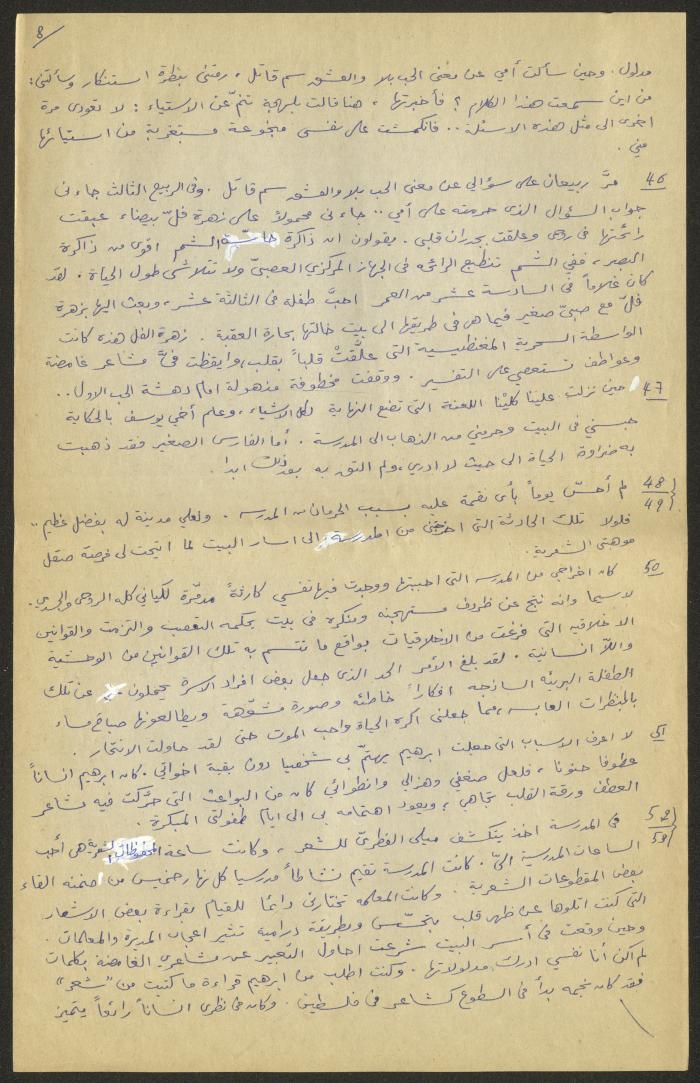 8
مدلول. وحين سألت أمي عن معنى الحب بلا والعشق سم قاتل، رمتني بنظرة استنكار وسألتني:
من اين سمعت هذا الكلام؟ فأخبرتها، هنا قالت بلهجة تنمّ عن الاستياء: لا تعودي مرة
اخرى الى مثل هذه الاسئلة.. فانكمشت على نفسي مخجوعة مستغربة من استيائها
مني.
46 مرَّ ربيعان على سؤالي عن معنى الحب بلا والعشق سم قاتل. وفي الربيع الثالث جاءني
جواب السؤال الذي حرمته على أمي.. جاءني محمولاً على زهرة فلّ بيضاء عبقت
رائحتها في روحي وعلقت بجدران قلبي. يقولون ان ذاكرة حاسّة الشم اقوى من ذاكرة
البصر، ففي الشم تنطبع الرائحه في الجهاز المركزي العصبيّ ولا تتلاشى طول الحياة. لقد
كان غلاماً في السادسة عشر من العمر احبَّ طفلة في الثالثة عشر، وبعث اليها بزهرة
فلّ مع صبيّ صغير فيما هي في طريقها الى بيت خالتها بحارة العقبة. زهرة الفل هذه كانت
الواسطة السحرية المغنطيسية التي علَّقتْ قلباً بقلب، وايقظت فيَّ مشاعر غامضة
وعواطف تستعصي على التفسير. ووقفت مخطوفة مذهولة امام دهشة الحب الاول..
47 حين نزلت علينا كلينا اللعنة التي تضع النهاية لكل الاشياء، وعلم أخي يوسف بالحكاية
حبسني في البيت وحرمني من الذهاب الى المدرسة. أما الفارس الصغير فقد ذهبت
به ضراوة الحياة الى حيث لا ادري، ولم التق به بعد ذلك ابدا.
48 49 لم أحسّ يوماً بأي نقمة عليه بسبب الحرمان من المدرسه. ولعلي مدينة له بفضل عظيم..
فلولا تلك الحادثة التي اخرجتني من المدرسة الى اسار البيت لما اتيحت لي فرصة صقل
موهبتي الشعرية.
50 كان اخراجي من المدرسه التي احببتها ووجدت فيها نفسي كارثةً مدمّرة لكياني كله الروحي والجسدي.
لا سيما وانه نتج عن ظروف مستهجنه ومنكرة في بيت يحكمه التعصب والتزمت والقوانين
الاخلاقيه التي فرغت من الاخلاقيات بواقع ما تتسم به تلك القوانين من الوحشية
واللاّ انسانية. لقد بلغ الأمر الحد الذي جعل بعض افراد الاسرة يحملون عن تلك
الطفلة البريئه الساذجه افكاراً خاطئه وصورة مشوّهة ويطالعونها صباح مساء
بالنظرات العابسه، مما جعلني اكره الحياة واحب الموت حتى لقد حاولت الانتحار.
51 لا اعرف الاسباب التي جعلت ابرهيم يهتمّ بي شخصيا دون بقية اخواتي. كان ابرهيم انساناً
عطوفا حنونا، فلعل ضعفي وهزالي وانطوائي كان من البواعث التي حرَّكت فيه مشاعر
العطف ورقة القلب تجاهي، ويعود اهتمامه بي الى ايام طفولتي المبكرة.
52 53 في المدرسة اخذ يتكشف ميلي الفطريّ للشعر، وكانت ساعة المحفوظات الشعرية هي أحب
الساعات المدرسية اليّ. كانت المدرسة تقيم نشاطاً مدرسيا كل نهار خميس من ضمنه القاء
بعض المقطوعات الشعرية. وكانت المعلمه تختارني دائما للقيام بقراءة بعض الاشعار
التي كنت اتلوها عن ظهر قلب بتحمّس وبطريقة درامية تثير اعجاب المديرة والمعلمات.
وحين وقعت في أسر البيت شرعت احاول التعبير عن مشاعري الغامضة بكلمات
لم اكن أنا نفسي ادرك مدلولاتها. وكنت اطلب من ابرهيم قراءة ما كتبت من "شعري"
فقد كان نجمه بدأ في السطوع كشاعر في فلسطين. وكان في نظري انساناً رائعاً يتميز